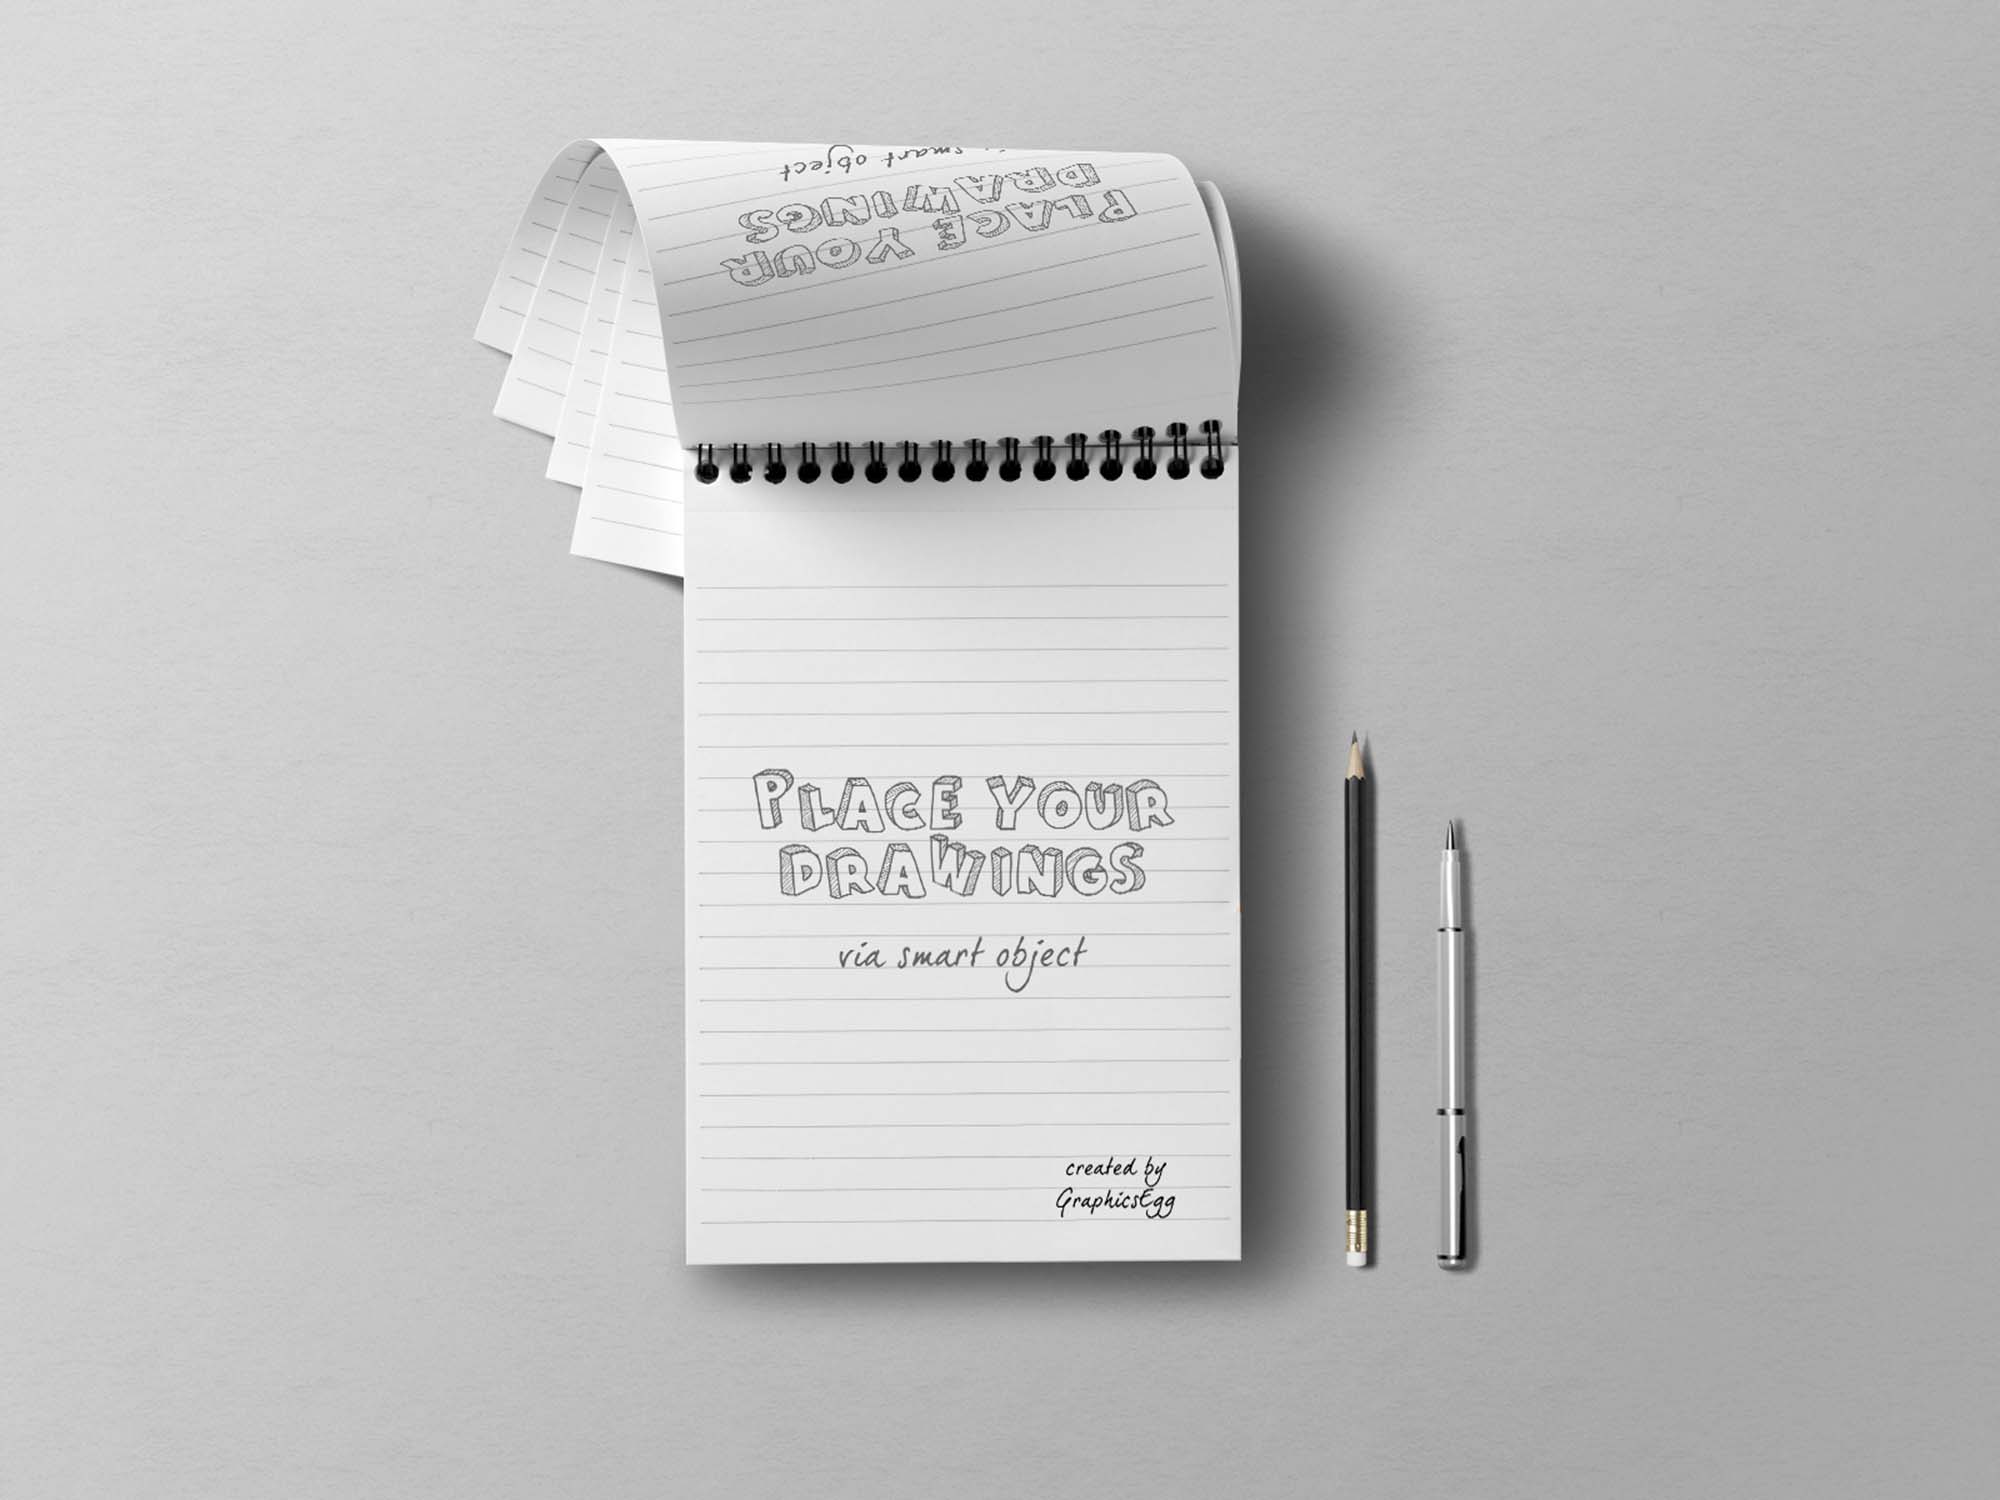 via smart object
PLACE YOUR
DRAWINGS
PLACE YOUR
DRAWINGS
via smart object
created by
GraphicsEgg